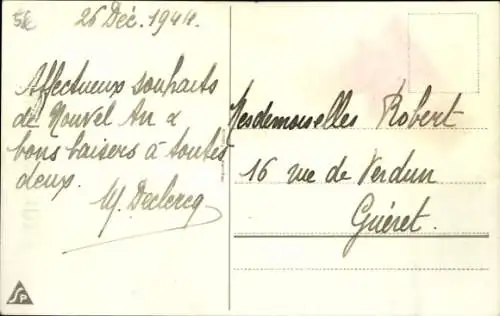 5€
26 Déc. 1944.
Affectueux souhaits
de Nouvel An &
bons baisers à toutes
deux.
M. Declercq
Mesdemoiselles Robert
16 rue de Verdun
Guéret.
SP